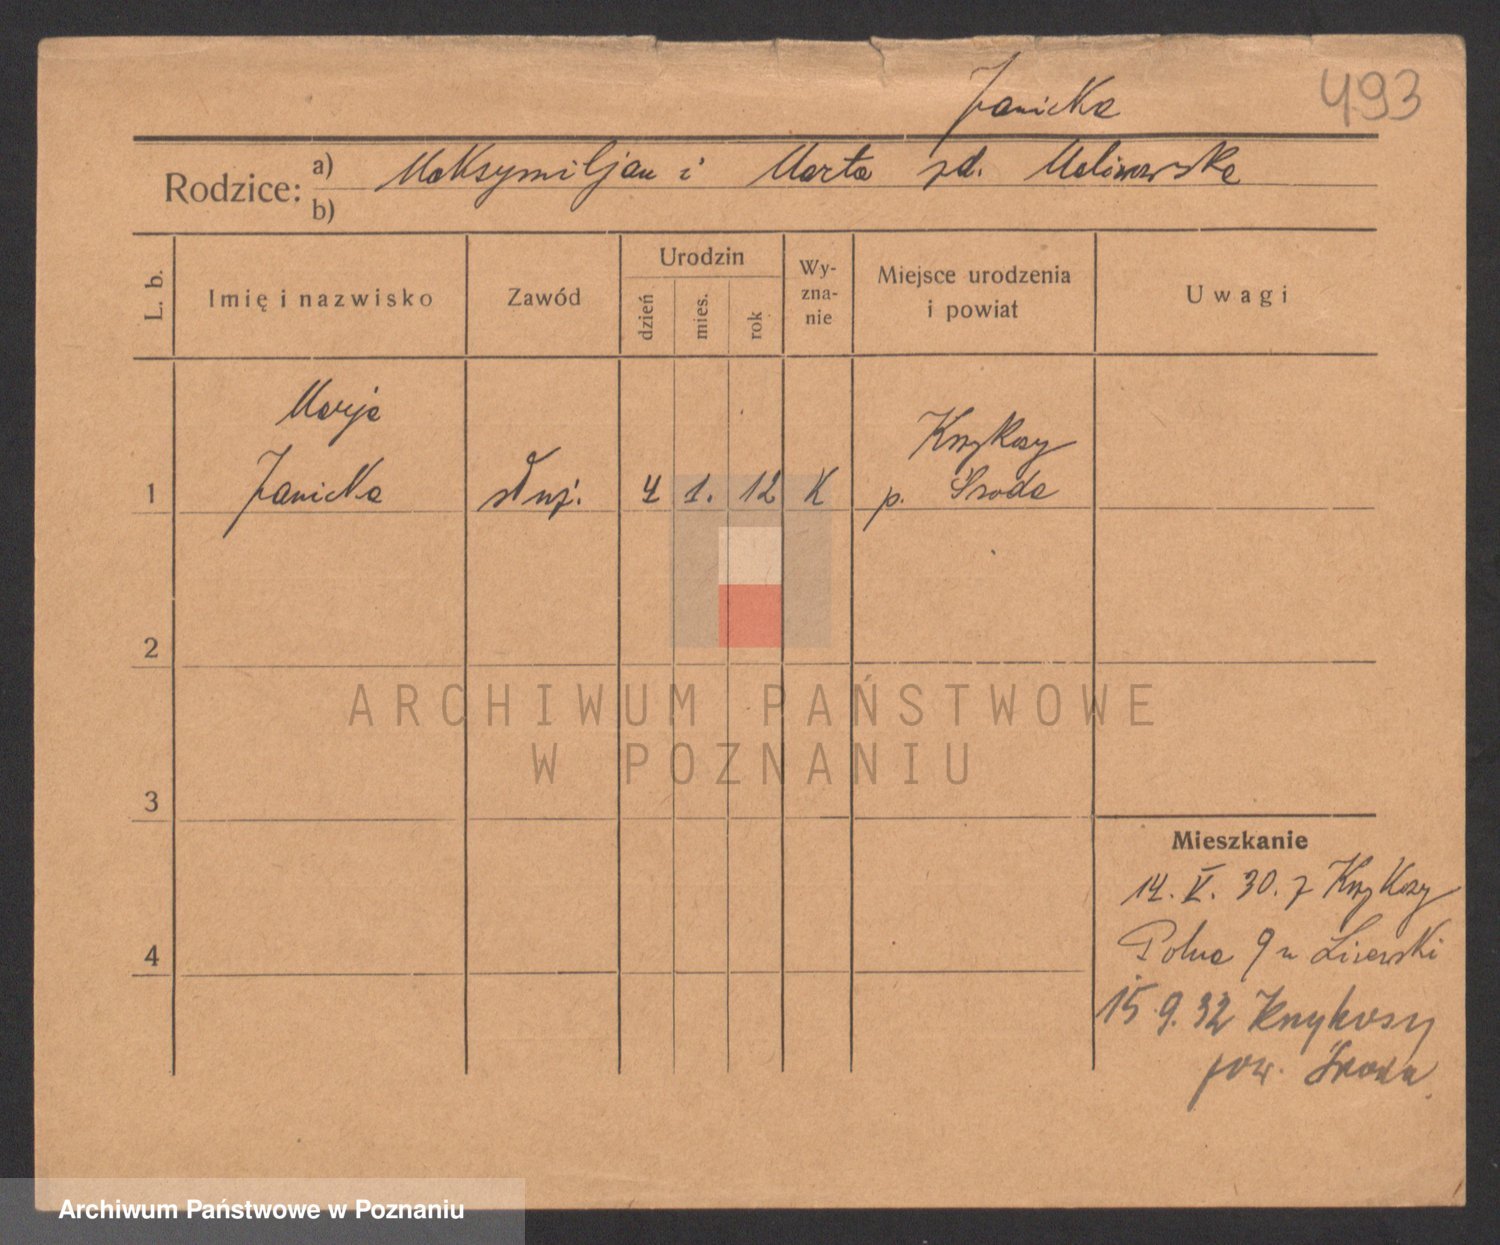 Janicka
493
Rodzice: a) Maksymiljan i Marta zd. Malinowska
b)
L. b.
Imię i nazwisko
Zawód
Urodzin
dzień
mies.
rok
Wy-
zna-
nie
Miejsce urodzenia
i powiat
Uwagi
Marja
Janicka
1
służ.
4
1.
12
K
Krzykosy
p. Środa
2
3
4
ARCHIWUM PAŃSTWOWE
W POZNANIU
Mieszkanie
14. V. 30. z Krzykosy
Polna 9 u Lisewski
15.9.32 Krzykosy
pow. Środa.
Archiwum Państwowe w Poznaniu